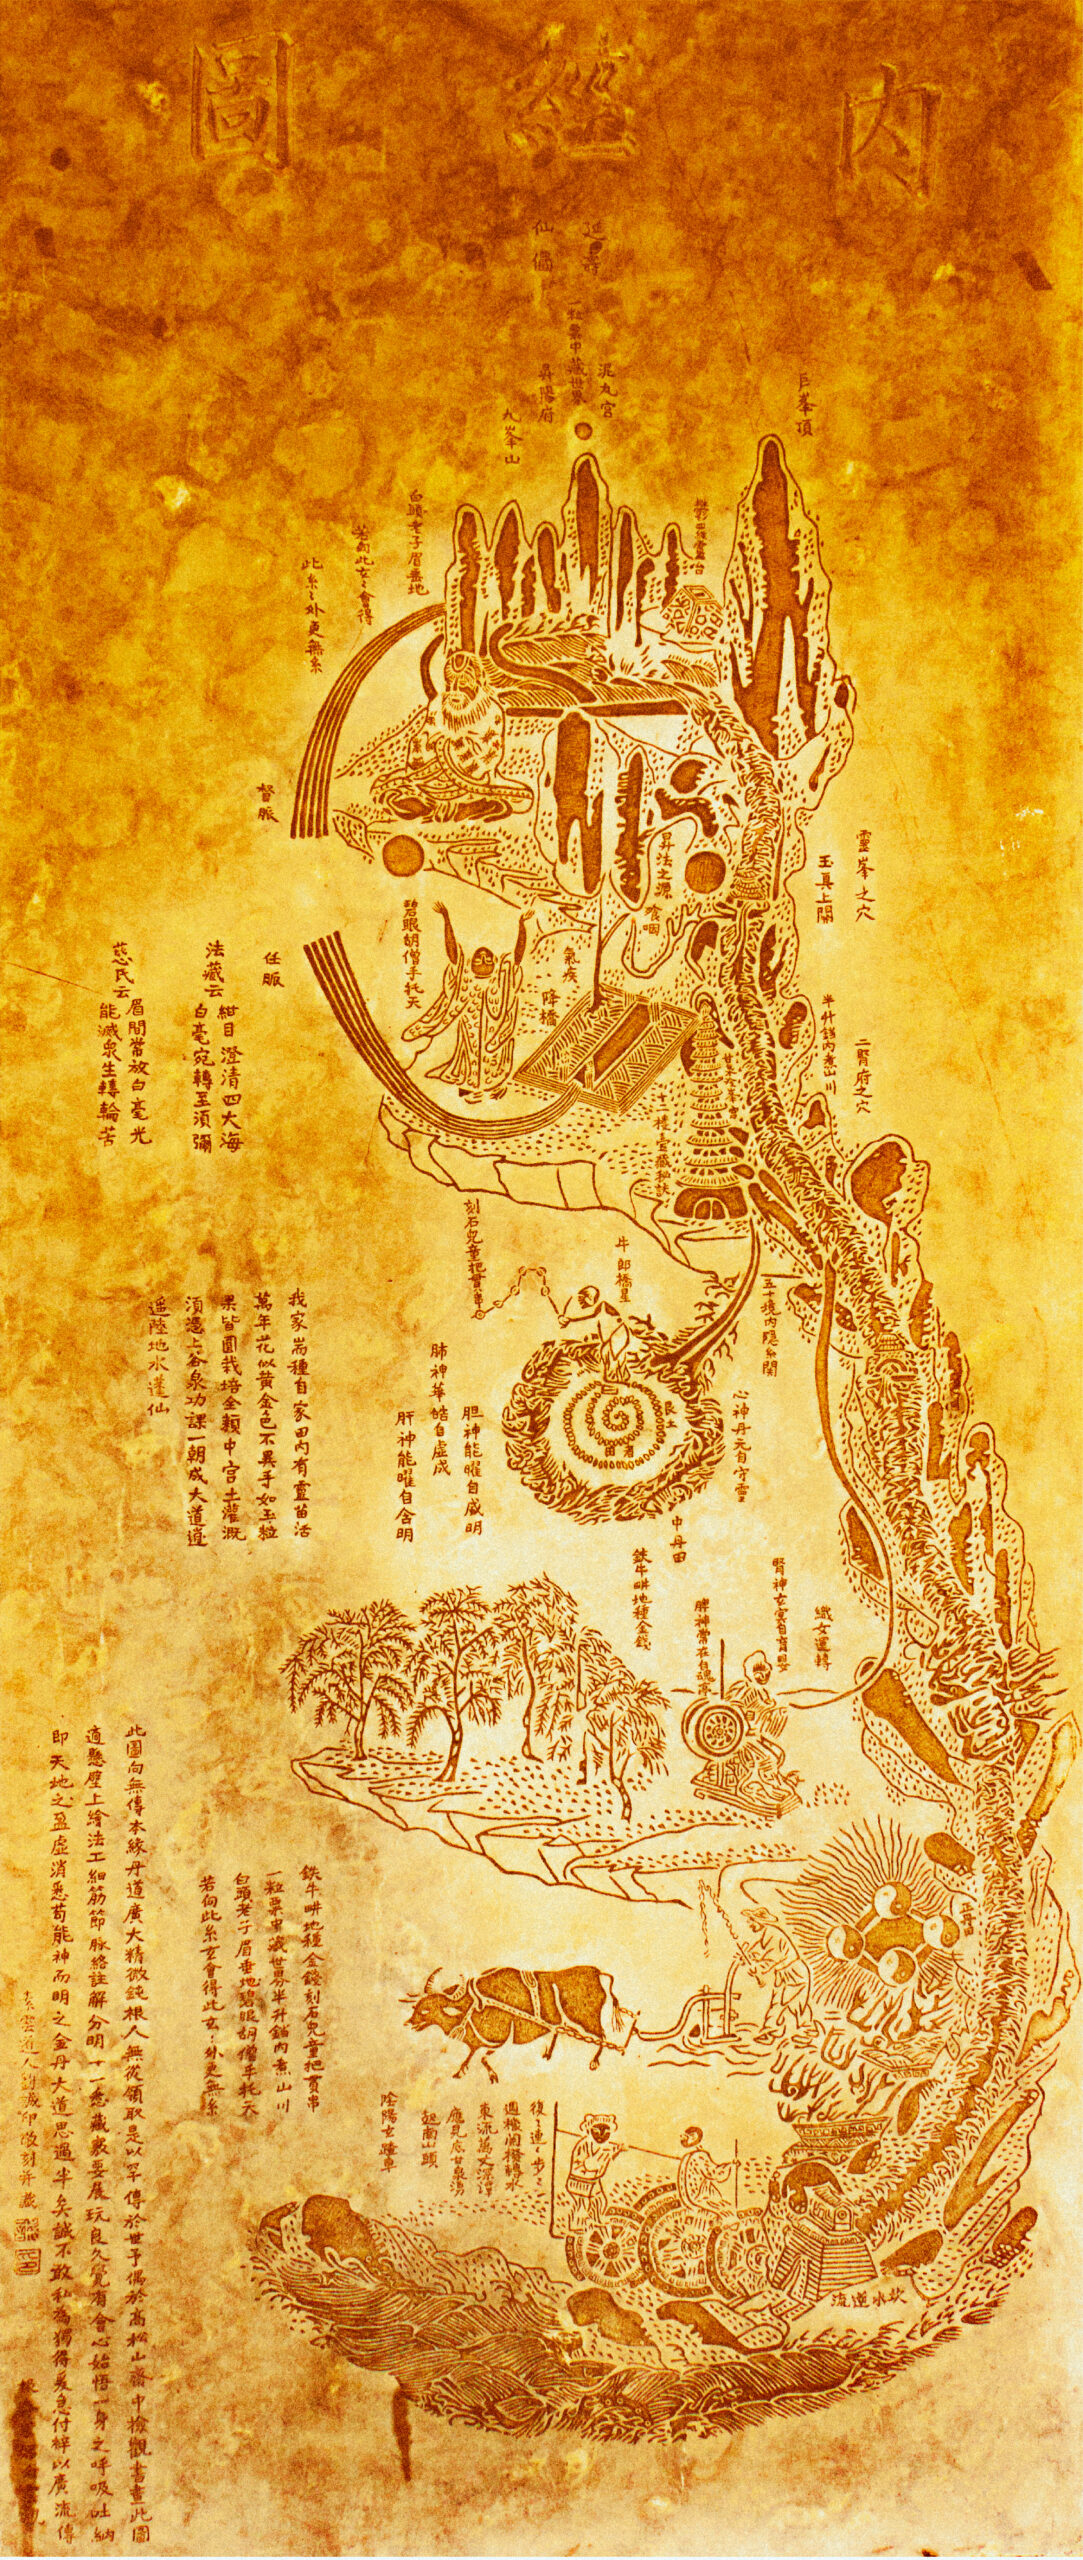 內經圖
延壽
仙偈
巨峯頂
泥丸宮
一粒粟中藏世界
昇陽府
九峯山
白頭老子眉垂地
若向此玄玄會得
此玄玄外更無玄
督脈
靈峯之穴
玉真上關
昇法之源
飡咽
氣疾
降橋
碧眼胡僧手托天
任脈
二腎府之穴
半升鐺內煮山川
十二樓臺藏秘訣
法藏云
紺目澄清四大海
白毫宛轉至須彌
慈氏云
眉間常放白毫光
能滅衆生轉輪苦
刻石兒童把貫串
牛郎橋星
五十境內隱玄關
心神丹元自守靈
肺神華皓自虛成
胆神能曜自威明
肝神能曜自含明
中丹田
我家耑種自家田內有靈苗活
萬年花似黃金色不異手如玉粒
果皆圓栽培全賴中宮土灌溉
須憑上谷泉功課一朝成大道逍
遥陸地水蓬仙
鉄牛畊地種金錢
脾神常在自魂亭
腎神玄冥自育嬰
織女運轉
正丹田
鉄牛畊地種金錢刻石兒童把貫串
一粒粟中藏世界半升鐺內煮山川
白頭老子眉垂地碧眼胡僧手托天
若向此玄玄會得此玄玄外更無玄
復復連連步步
週機關撥轉水
東流萬丈深潭
應見底甘泉湧
起南山頭
陰陽玄蹅車
坎水逆流
此圖向無傳本緣丹道廣大精微鈍根人無從領取是以罕傳於世予偶於高松山齋中檢觀書畫此圖
適懸壁上繪法工細筋節脉絡註解分明一一悉藏竅要展玩良久覺有會心始悟一身之呼吸吐納
即天地之盈虛消息苟能神而明之金丹大道思過半矣誠不敢私為獨得爰急付梓以廣流傳
素雲道人劉誠印敬刻并藏